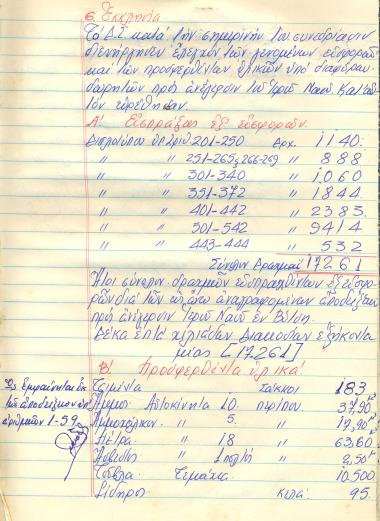 6. Ἐκκλησία
Τό Δ.Σ. κατά τήν σημερινήν του συνεδρίασιν
διενήργησεν ἔλεγχον τῶν γενομένων εἰσφορῶν
καί τῶν προσφερθέντων ὑλικῶν ὑπό διαφόρων
δωρητῶν πρός ἀνέγερσιν τοῦ Ἱεροῦ Ναοῦ
Α! Εἰσπράξεις ἐξ εἰσφορῶν.
Διπλοτύπου ὑπ' ἀριθ 201-250 Δρχ. 1140:
" " 251-265 & 266-269 " 888
" " 301-340 " 1060
" " 351-372 " 1844
" " 401-442 " 2383.
" " 501-542 " 9414
" " 443-444 " 532
Σύνολον Δραχμαί 17261
Ἤτοι σύνολον δραχμῶν εἰσπραχθέντων ἐξ εἰσφο-
ρῶν διά τῶν ὡς ἄνω ἀναγραφομένων ἀποδείξεων
πρός ἀνέγερσιν Ἱεροῦ Ναοῦ ἐν
Δέκα ἑπτά χιλιάδων Διακοσίων ἑξήκοντα
μίας [17261]
Β! Προσφερθέντα ὑλικά
Ὡς ἐμφαίνεται ἐκ
τῶν ἀποδείξεων ὑπ'
ἀριθμῶν 1-59.
Τσιμέντα Σάκκοι 183
Ἄμμος: Αὐτοκίνητα 10. περίπου. 37,90
Ἀμμοχάλικον. " 5. " 17,90
Πέτρα. " 18 " 63,60
Ἀσβέστης " 1 " 2,50
Τοῦβλα Τεμάχια. 10.500
Σίδηρος. κιλά: 95.